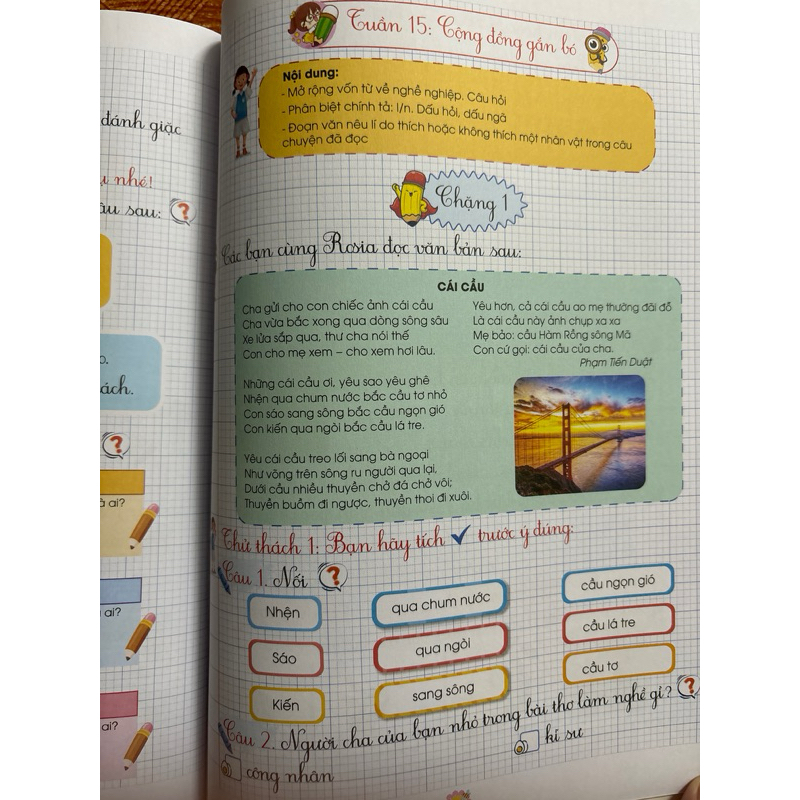 Tuần 15: Cộng đồng gắn bó
Nội dung:
- Mở rộng vốn từ về nghề nghiệp. Câu hỏi
- Phân biệt chính tả: l/n. Dấu hỏi, dấu ngã
- Đoạn văn nêu lí do thích hoặc không thích một nhân vật trong câu
chuyện đã đọc
Chặng 1
Các bạn cùng Rosia đọc văn bản sau:
CÁI CẦU
Cha gửi cho con chiếc ảnh cái cầu
Cha vừa bắc xong qua dòng sông sâu
Xe lửa sắp qua, thư cha nói thế
Con cho mẹ xem – cho xem hơi lâu.
Những cái cầu ơi, yêu sao yêu ghê
Nhện qua chum nước bắc cầu tơ nhỏ
Con sáo sang sông bắc cầu ngọn gió
Con kiến qua ngòi bắc cầu lá tre.
Yêu cái cầu treo lối sang bà ngoại
Như võng trên sông ru người qua lại,
Dưới cầu nhiều thuyền chở đá chở vôi;
Thuyền buồm đi ngược, thuyền thoi đi xuôi.
Yêu hơn, cả cái cầu ao mẹ thường đãi đỗ
Là cái cầu này ảnh chụp xa xa
Mẹ bảo: cầu Hàm Rồng sông Mã
Con cứ gọi: cái cầu của cha.
Phạm Tiến Duật
Thử thách 1: Bạn hãy tích ✓ trước ý đúng:
Câu 1. Nối
Nhện
qua chum nước
cầu ngọn gió
Sáo
qua ngòi
cầu lá tre
Kiến
sang sông
cầu tơ
Câu 2. Người cha của bạn nhỏ trong bài thơ làm nghề gì?
công nhân
kĩ sư
đánh giặc
nhé!
sau:
ách.
ai?
ai?
ai?